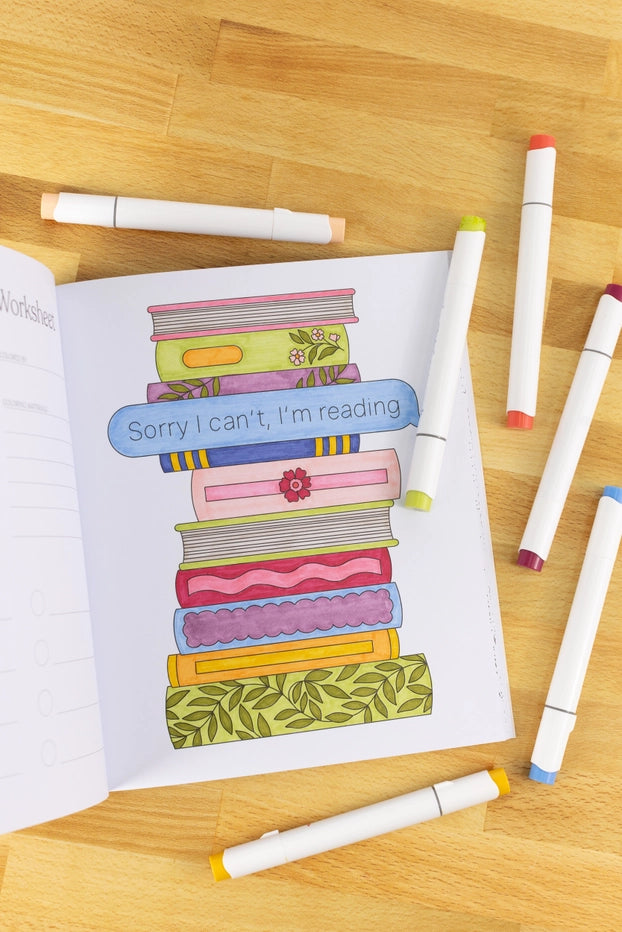 Worksheet
COLORED BY:
COLORING MATERIALS:
Sorry I can't, I'm reading